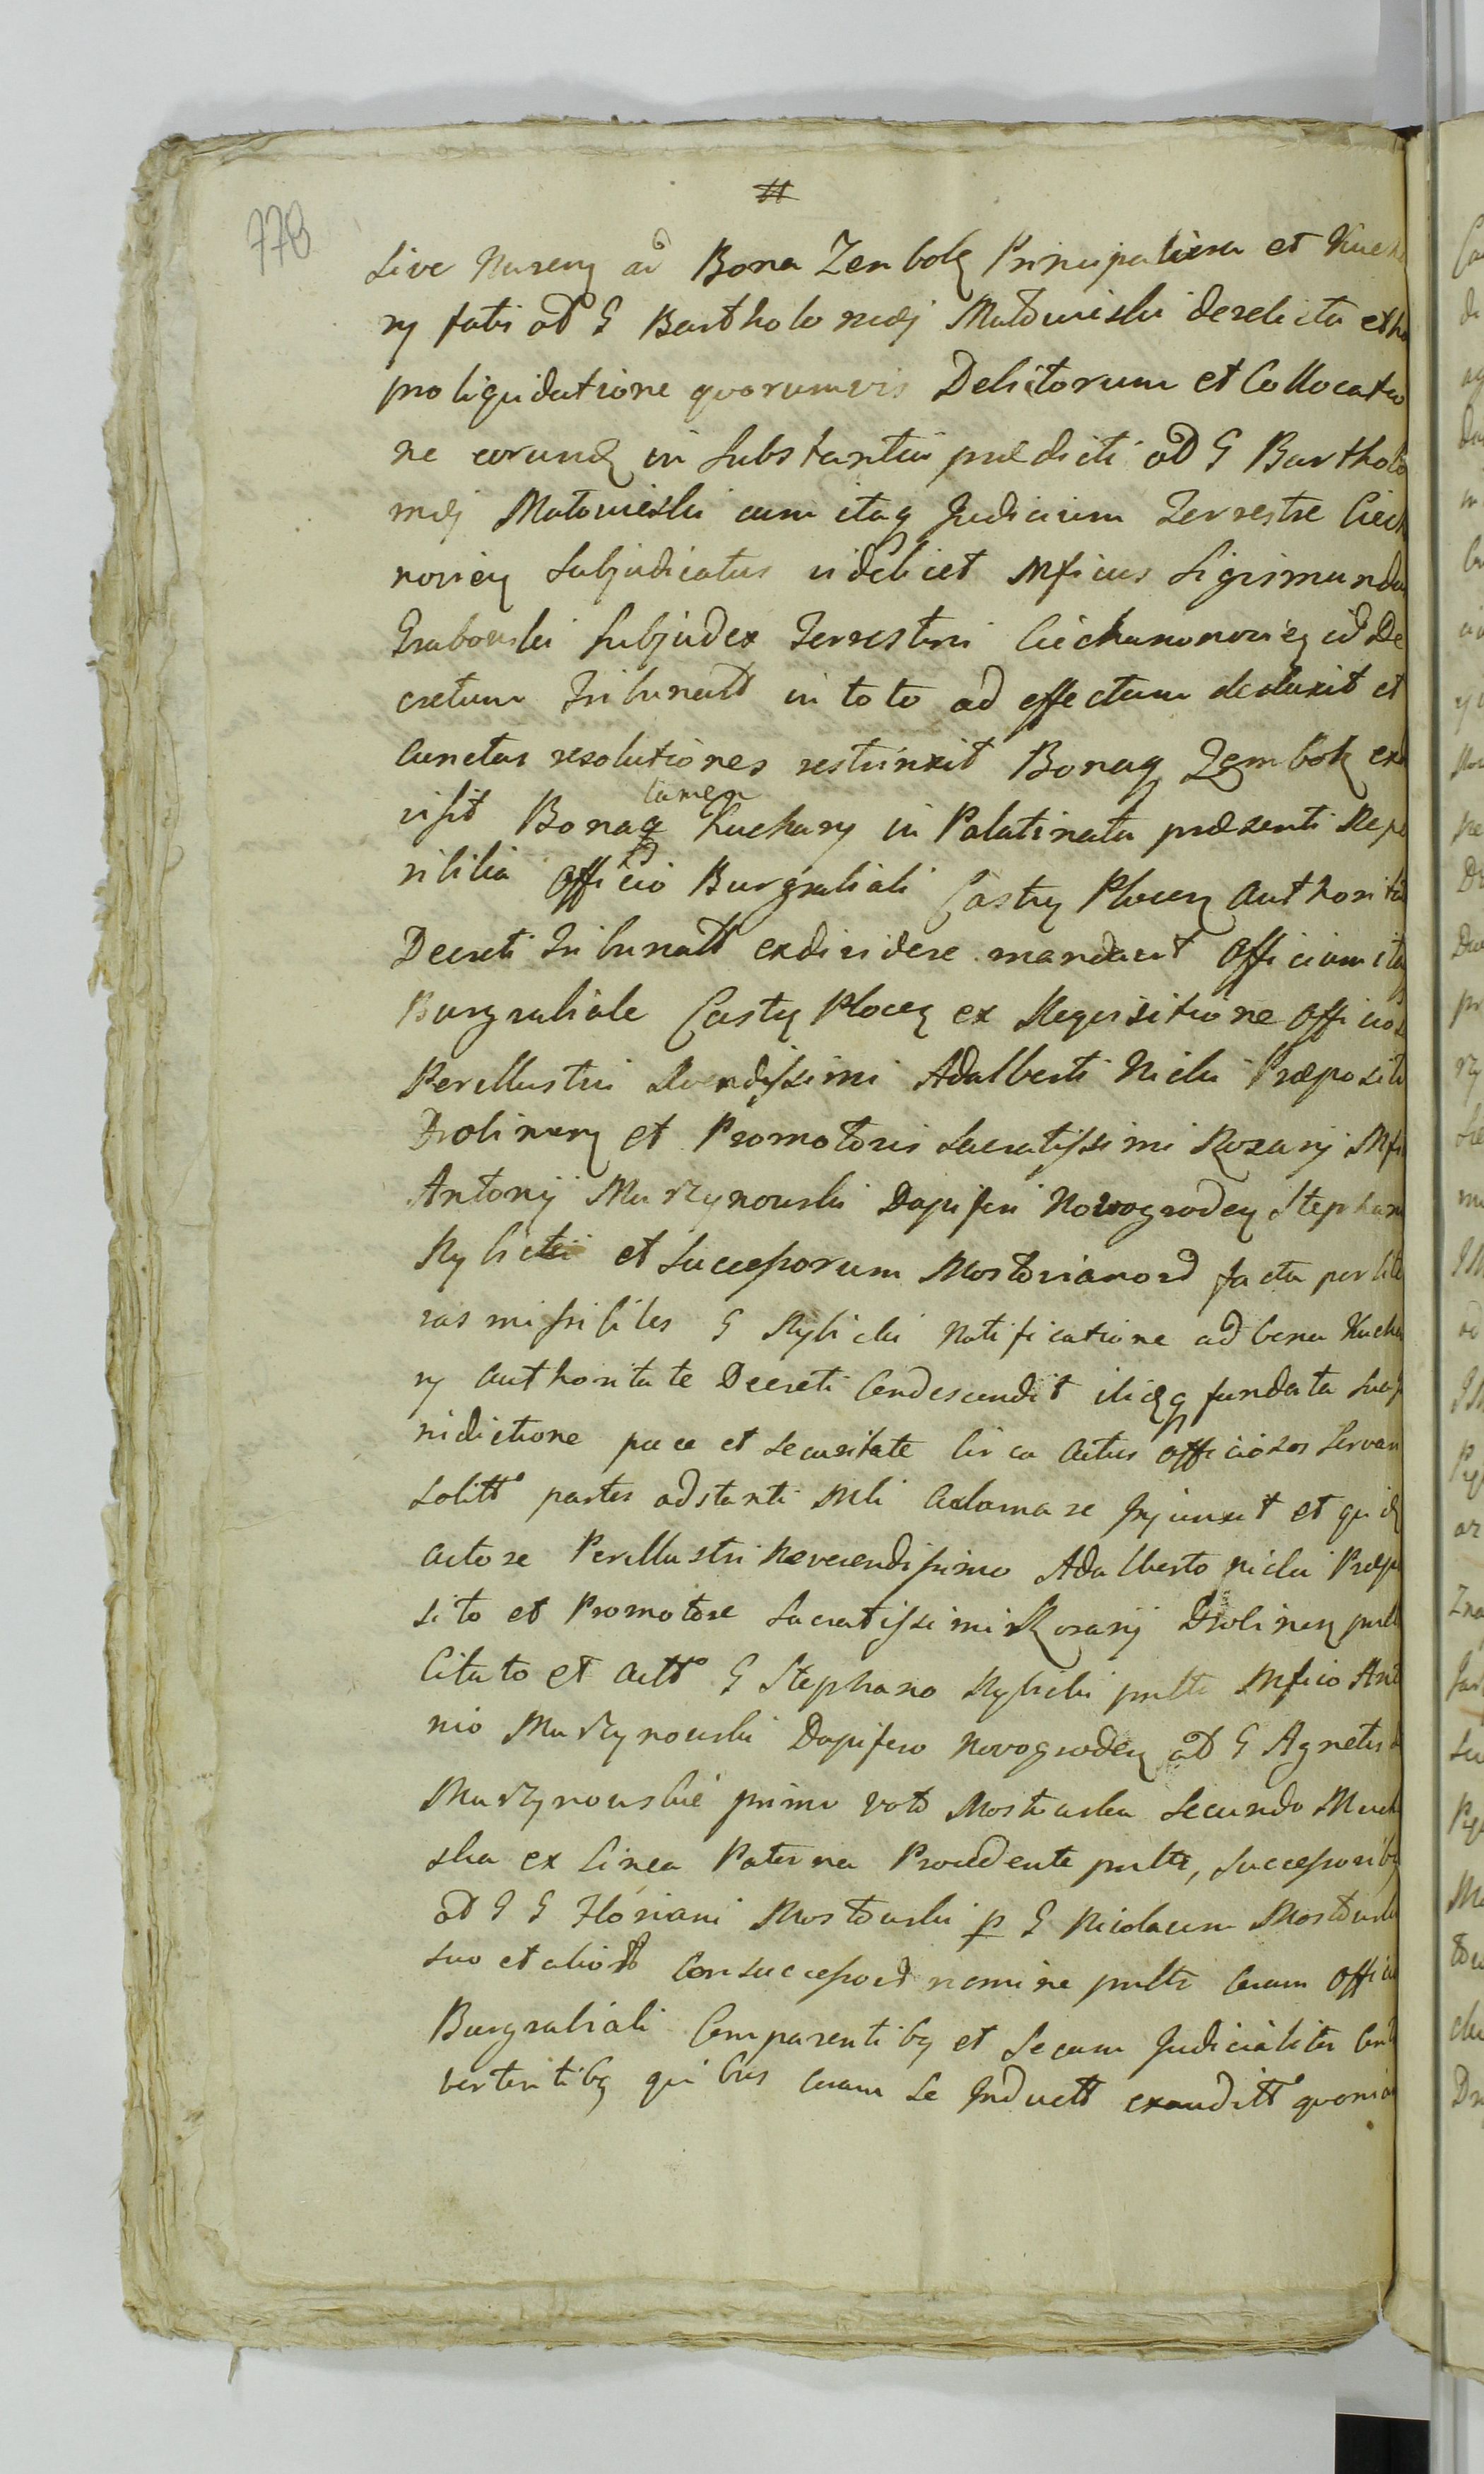 778
Sive Nureng ad Bona Zembok Principaliora et Kucha
ry fati od G Bartholomæj Małowieski derelicta et ho
pro liquidatione quorumvis Debitorum et Collocatio
ne eorundq in Substantia prædicti od G Bartholo
mæj Małowieski cum itaq Judicium Terrestre Ciech
novien Subjudicatus videlicet Mficus Sigismundus
Grabowski Subjudex Terrestris Ciechanoновien id De
cretum Tribunatt in toto ad effectum deduxit et
cunctas resolutiones restrinxit Bonaq Zembok exd
tamen
visit Bonaq Kuchary in Palatinatu præsenti Repe
ribilia Officio Burgrabiali Castrq Plocen Authorita
Decreti Tribunatt exdividere mandavit Officium itaq
Burgrabiale Castrq Plocen ex Requisitione Officiosa
Perillustri Rverndissimi Adalberti Nicki Præpositi
Drobinen et Promotoris Sacratissimi Rozarij Mfi
Antonij Murzynowski Dapiferi Nowogroden Stephani
Rybicki et Successorum Mostovianord facta per lite
ras missibiles G Rybicki Notificatione ad bona Kucha
ry Authoritate Decreti Condescendit ibiq fundata Sua Ju
risdictione pace et securitate circa Actus Officiosos Servari
Solitt partes adstanti Mli Aclamare Injunxit et quidq
Actore Perillustri Reverendissimo Adalberto Nicki Præpo
sito et Promotore Sacratissimi Rosarij Drobinen pntte
Citato et Actt G Stephano Rybicki pntte Mfico Anto
nio Murzynowski Dapifero Novogroden od G Agnetis
Murzynowskie primo voto Mostowska Secundo Much
ska ex Linea Paterna Procedente pntte, Successoribq
od G G Floriani Mostowski p G Nicolaum Mostowski
suo et aliord Consuccessord nomine pntte Coram Officio
Burgrabiali Comparentibq et Secum Judicialiter Cont
vertentibq quibus Coram Se Inductt exauditt quoniam